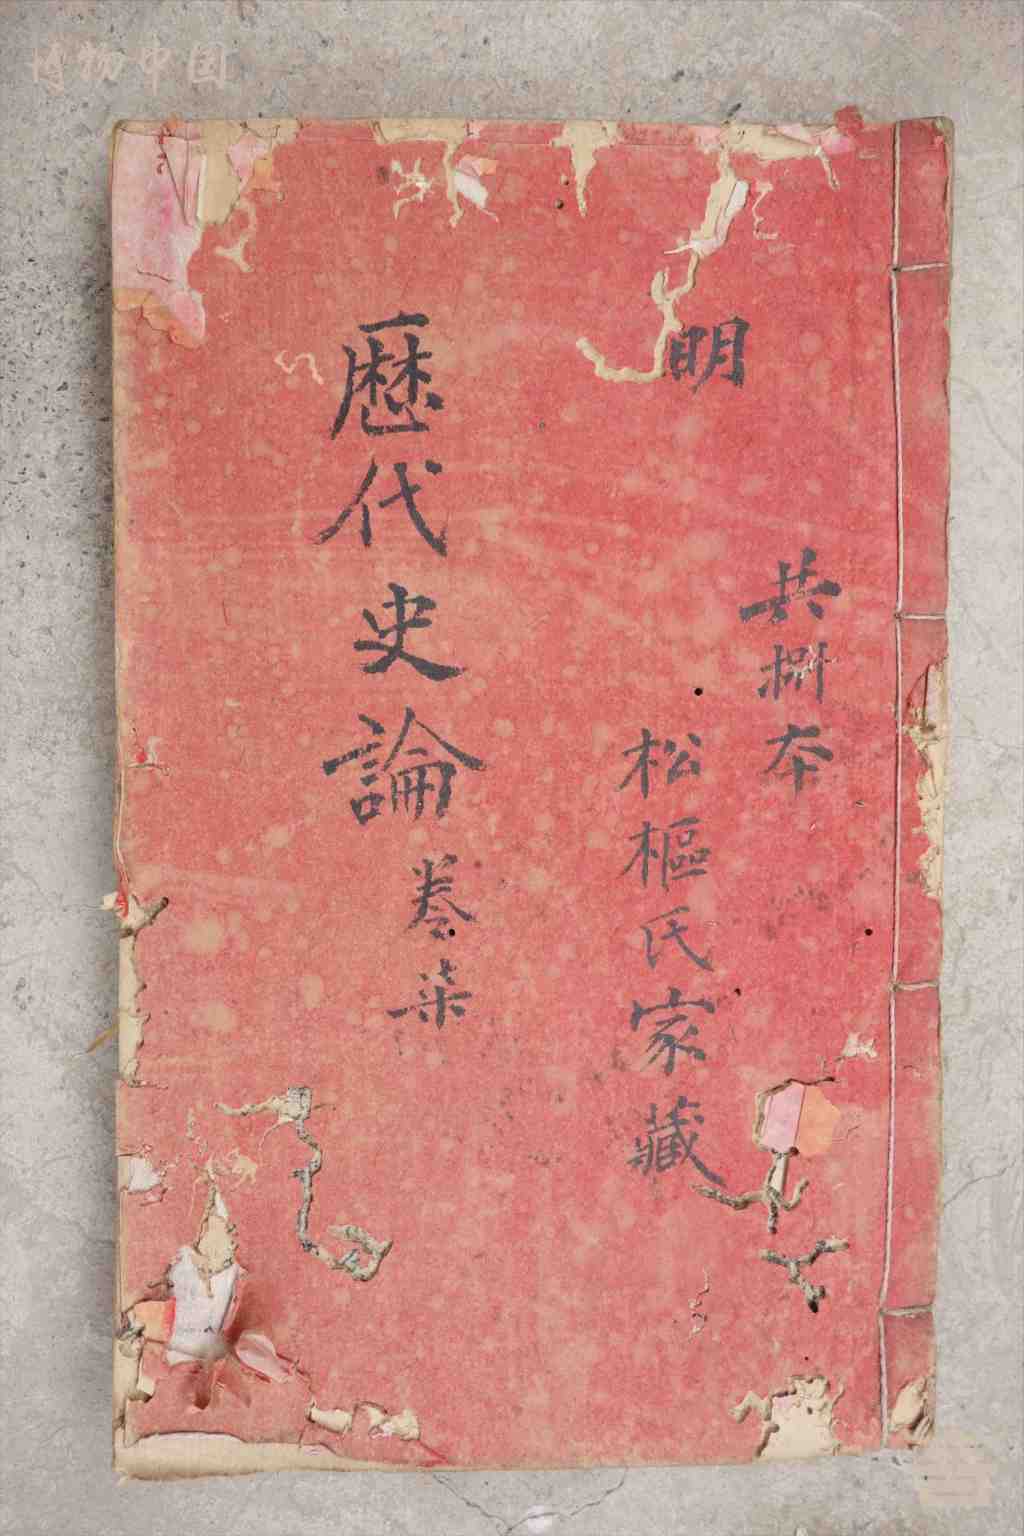 博物中国
共捌本
明
松樞氏家藏
歷代史論
卷柒